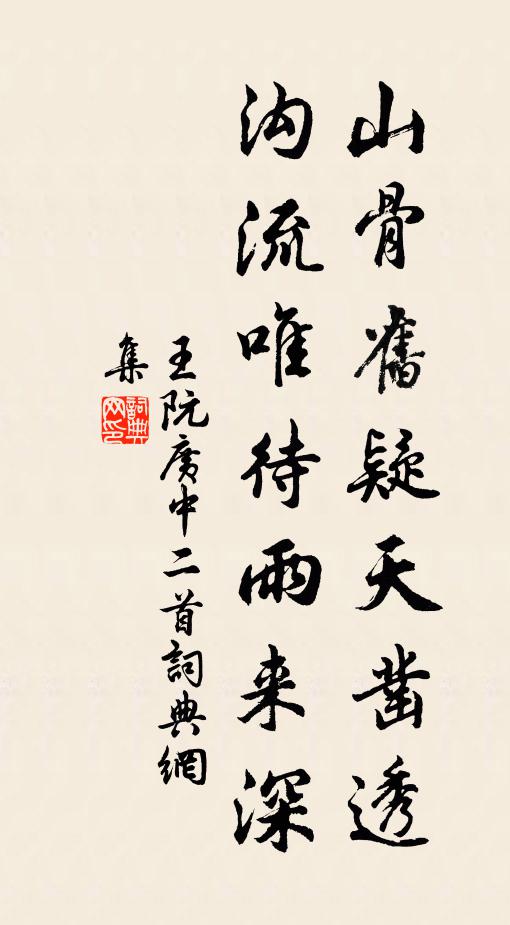 山骨舊疑天凿透
沟流唯待雨来深
王阮廣中二首詞典網
集
詞典
网印